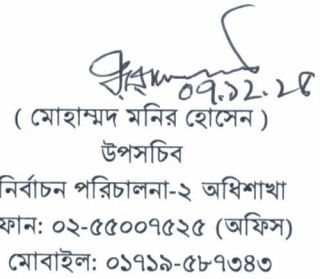 ০৭.১২.২৫
( মোহাম্মদ মনির হোসেন )
উপসচিব
নির্বাচন পরিচালনা-২ অধিশাখা
ফোন: ০২-৫৫০০৭৫২৫ (অফিস)
মোবাইল: ০১৭১৯-৫৮৭৩৪৩